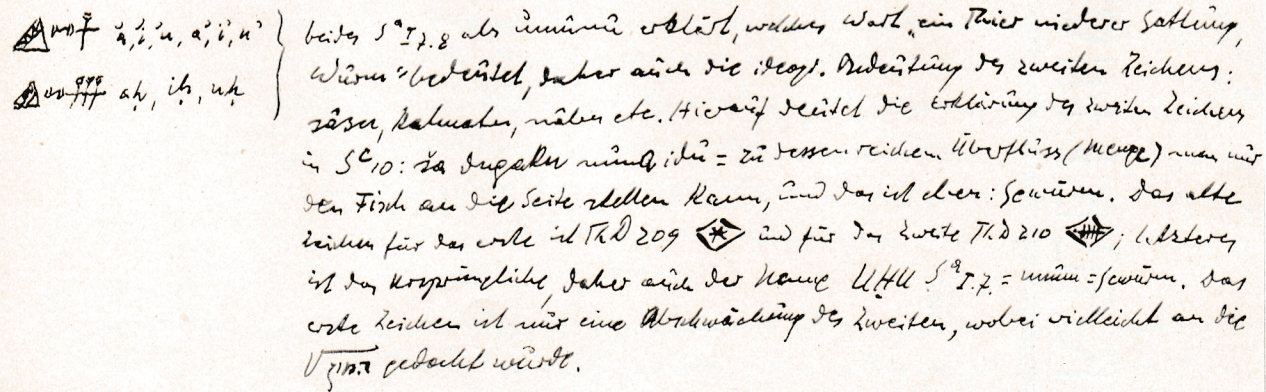 ă, ĭ, ŭ, a', i', u' } beides Sᵃ I 7.8 als umunu erklärt, welches Wort „ein Thier niederer Gattung,
aḫ, iḫ, uḫ } Wurm" bedeutet, daher auch die ideogr. Bedeutung des zweiten Zeichens:
kalmatu, nâbu etc. Hierauf deutet die Erklärung des zweiten Zeichens
in Sᶜ 10: ša dugaku = zu dessen reichem Überfluss (Menge) man nur
den Fisch an die Seite stellen kann, und das ist eben: Gewürm. Das alte
Zeichen für das erste ist Th.D 209 und für das zweite Th.D 210 ; letzteres
ist das Ursprüngliche, daher auch der Name UḪU Sᵃ I.7. = umun = Gewürm. Das
erste Zeichen ist nur eine Abschwächung des Zweiten, wobei vielleicht an die
√ gedacht wurde.